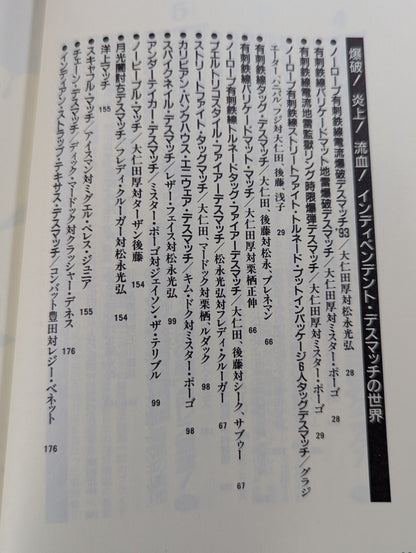 爆破! 炎上! 流血! インディペンデント・デスマッチの世界
●ノーロープ有刺鉄線電流爆破デスマッチ'93／大仁田厚対松永光弘 28
●有刺鉄線バリケードマット地雷爆破デスマッチ／大仁田厚対ミスター・ポーゴ 28
●ノーロープ有刺鉄線電流地雷監獄リング時限爆弾デスマッチ／大仁田厚対ミスター・ポーゴ 29
●ノーロープ有刺鉄線ストリートファイト・トルネード・プットインパッケージ6人タッグデスマッチ／グラジ
エーター、フジ対大仁田、後藤、浅子 29
●有刺鉄線タッグ・デスマッチ／大仁田、後藤対松永、ブレネマン 66
●有刺鉄線バリケードマット・マッチ／大仁田厚対栗栖正伸 66
●ノーロープ有刺鉄線トルネードタッグ・ファイアーデスマッチ／大仁田、後藤対シーク、サブゥー 67
●プエルトリコスタイル・ファイアーデスマッチ／松永光弘対フレディ・クルーガー 67
●ストリートファイト・タッグマッチ／大仁田、マードック対栗栖、ルダック 98
●カリビアン・バンクハウス・エニウェア・デスマッチ／キム・ドク対ミスター・ポーゴ 98
●スパイクネイル・デスマッチ／レザー・フェイス対松永光弘 99
●アンダーテイカー・デスマッチ／ミスター・ポーゴ対ジェイソン・ザ・テリブル 99
●ノーピープル・マッチ／大仁田厚対ターザン後藤 154
●月光闇討ちデスマッチ／フレディ・クルーガー対松永光弘 154
●洋上マッチ 155
●スキャフル・マッチ／アイスマン対ミグエル・ペレス・ジュニア 155
●チェーン・デスマッチ／ディック・マードック対クラッシャー・デネス 176
●インディアン・ストラップ・テキサス・デスマッチ／コンバット豊田対レジー・ベネット 176